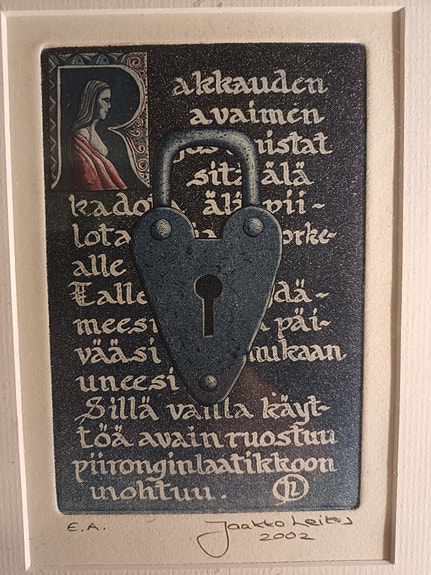 Rakkauden
avaimen
sitä älä
kadota älä pii-
lota
alle
meesi päi-
vääsi mukaan
uneesi
Sillä vailla käyt-
töä avain ruostuu
piironginlaatikkoon
unohtuu.
E.A. Jaakko
2002